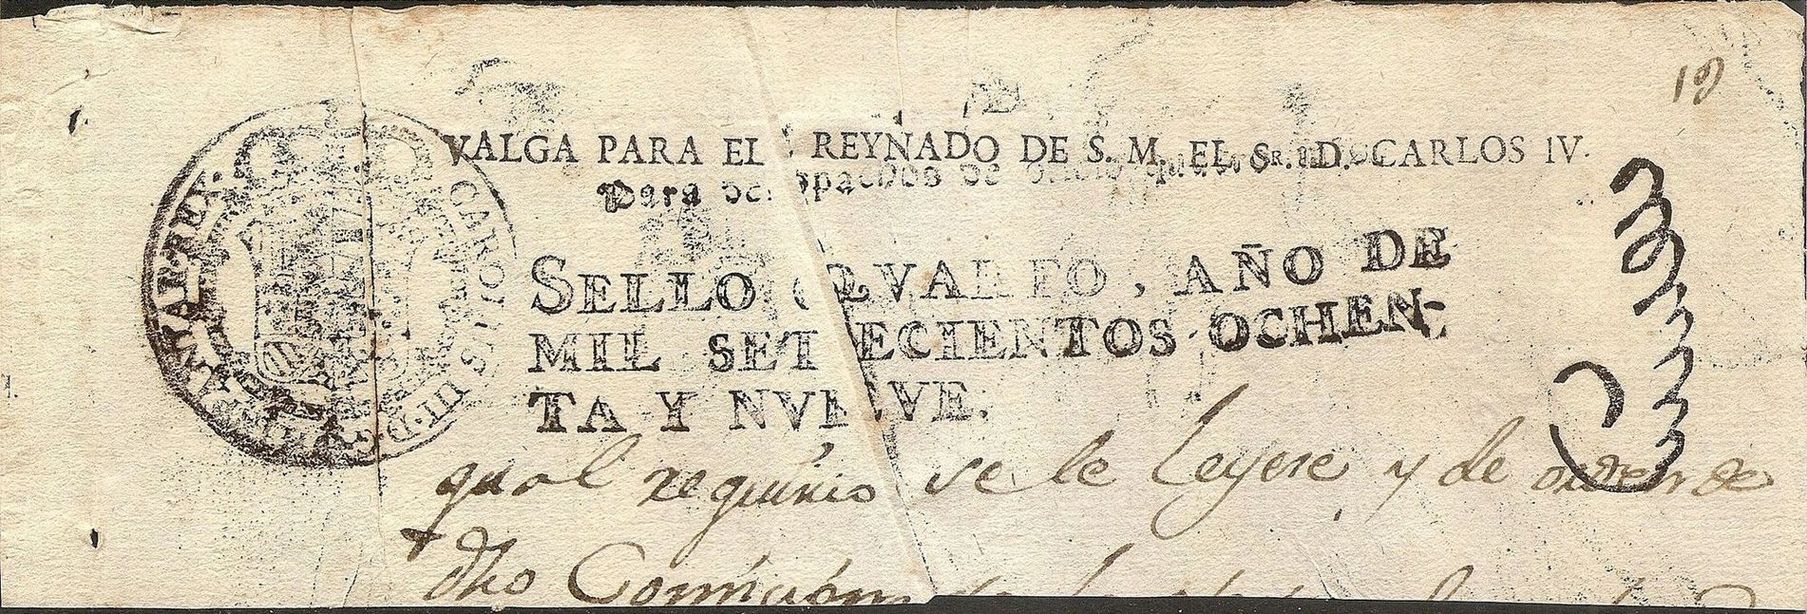 19
VALGA PARA EL REYNADO DE S. M. EL SR. D. CARLOS IV.
Para despachos de oficio
SELLO QVARTO, AÑO DE
MIL SETECIENTOS OCHEN-
TA Y NVEVE.
CAROLUS III D. G. HISPANIAR. REX.
qual requirio se le leyese y de orden de
dho Comision